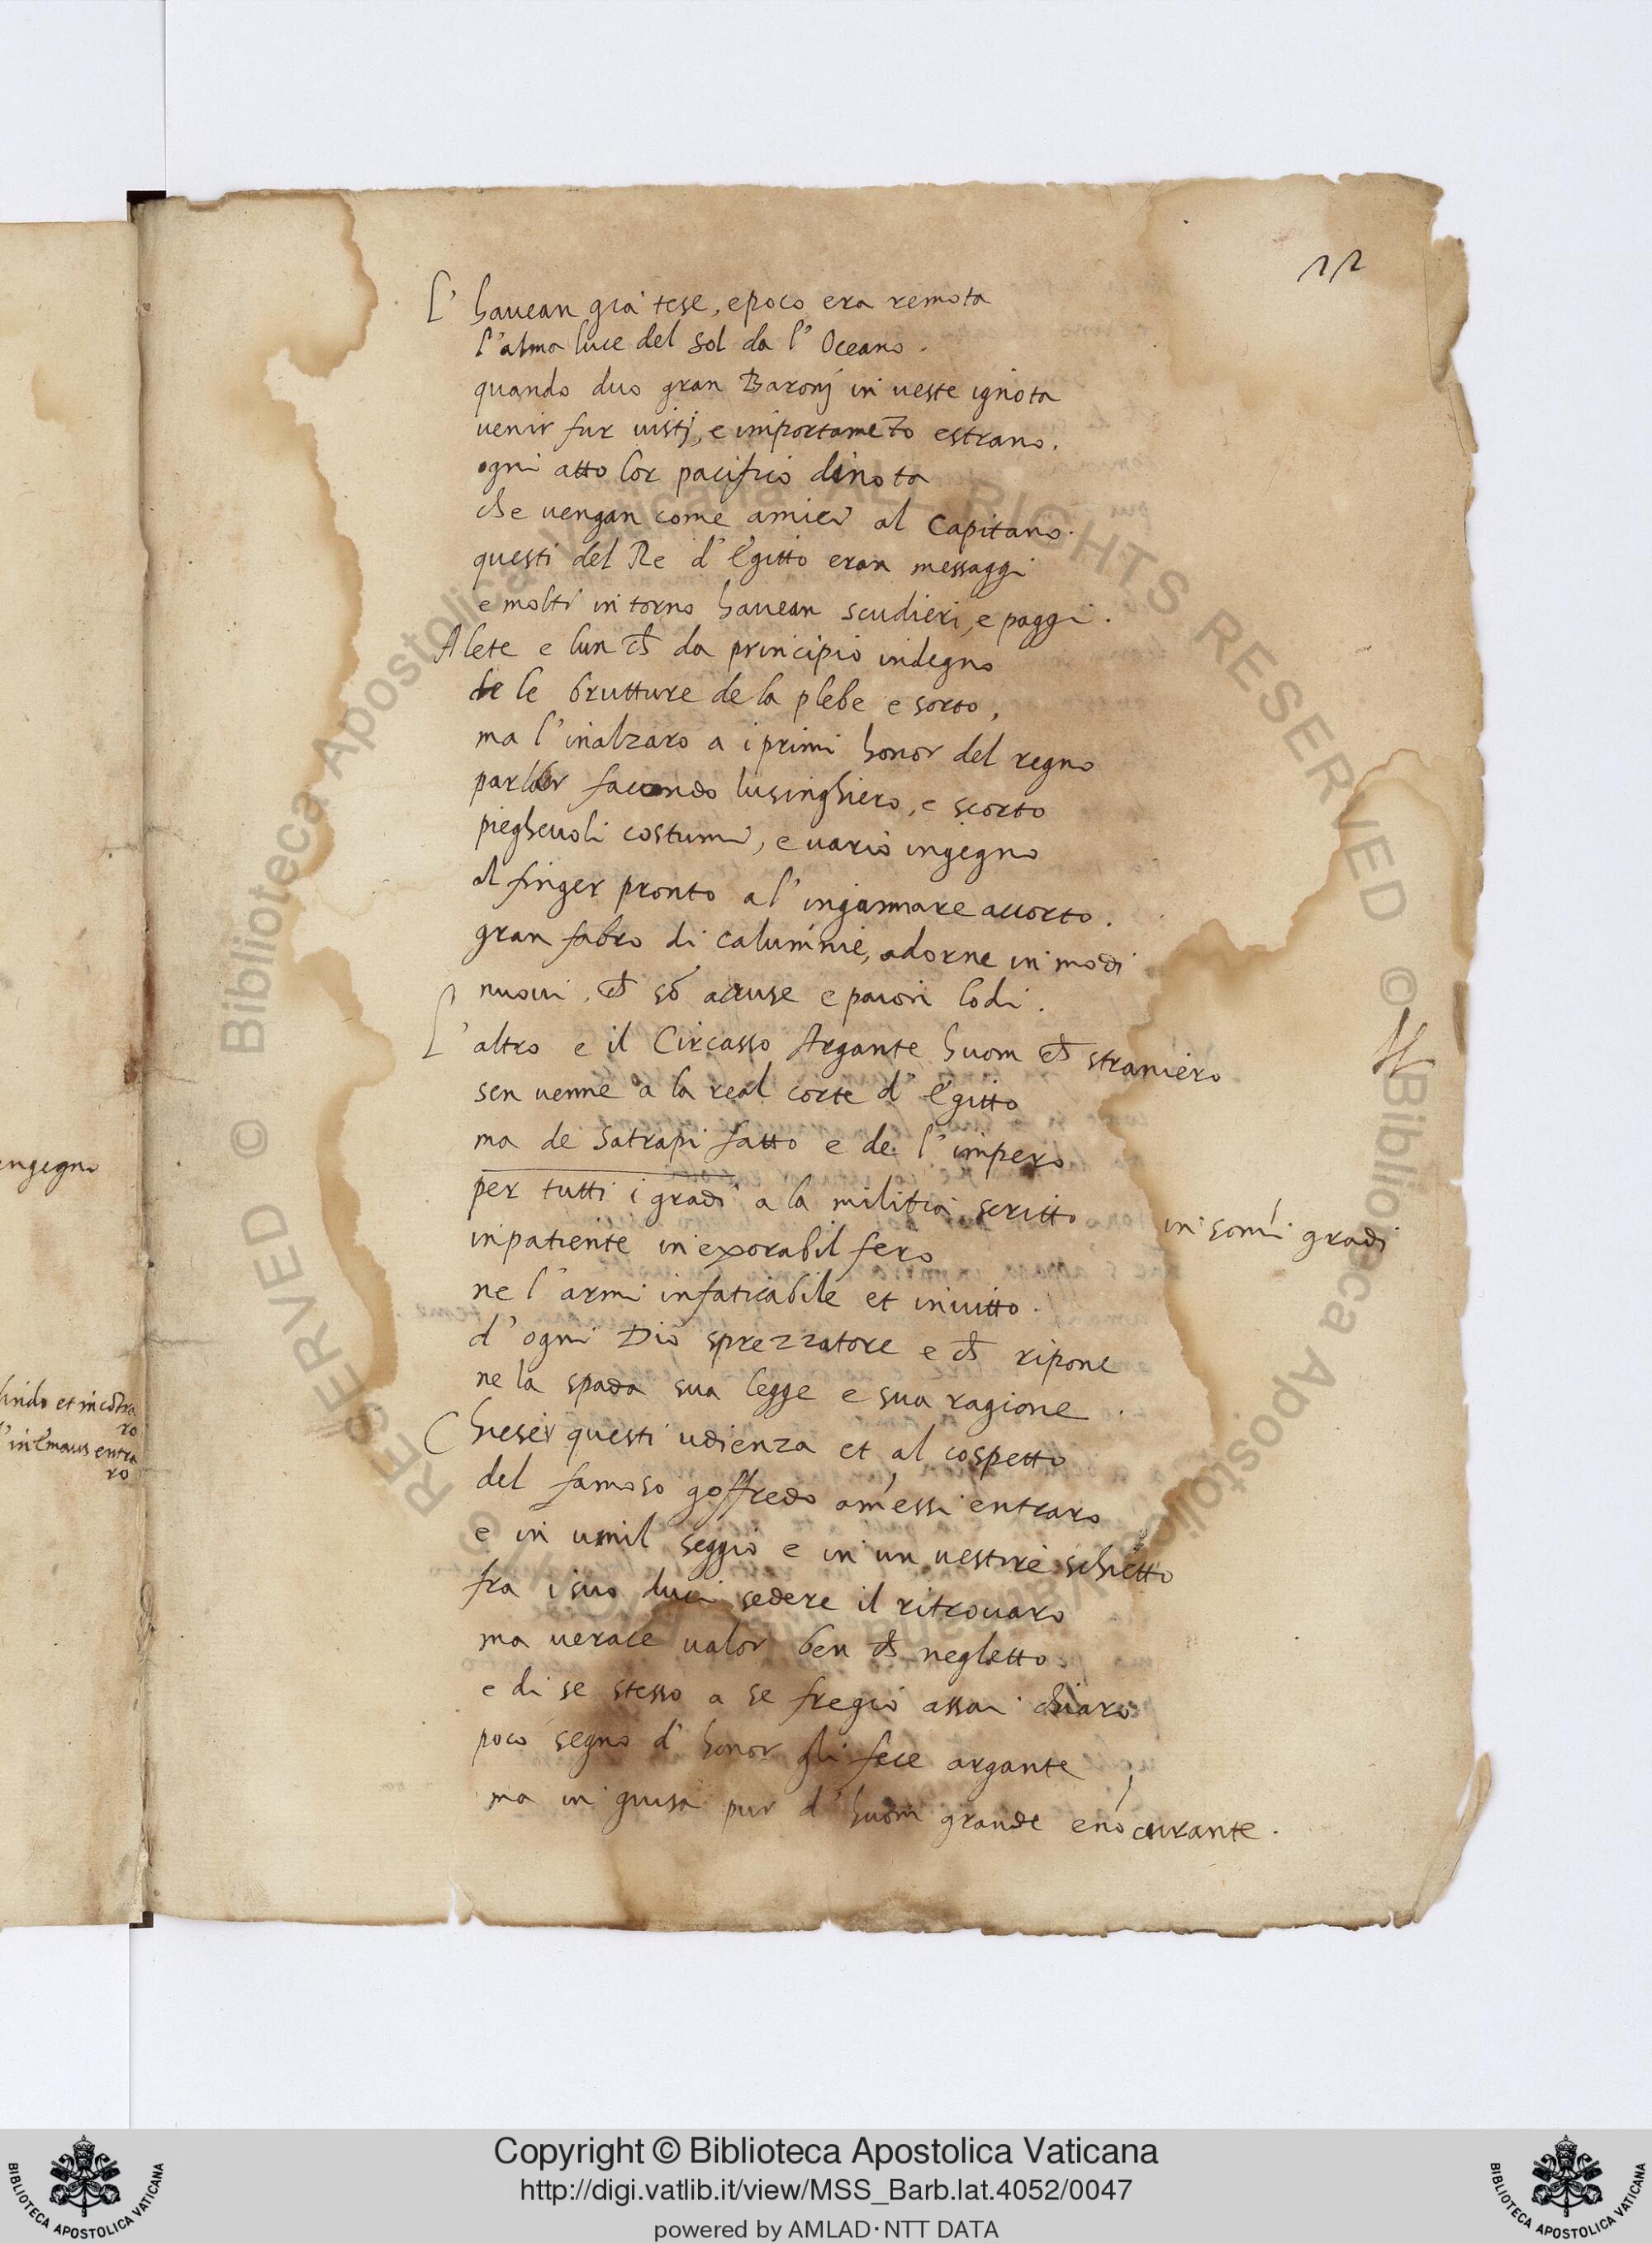 22
L'havean già tese, e poco era remota
l'alma luce del sol da l'Oceano.
quando duo gran Baronj in veste ignota
venir fur vistj, e importame͂to estrano.
ogni atto lor pacifico dinota
che vengan come amici al Capitano.
questi del Re d'Egitto eran messaggi
e molti intorno havean scudieri, e paggi.
Alete e lun ch̃ da principio indegno
de le brutture de la plebe e sorto,
ma l'inalzaro a i primi honor del regno
parlar facondo lusinghiero, e scorto
pieghevoli costumi, e vario ingegno
al finger pronto a l'ingannare accorto.
gran fabro di calumnie, adorne in modi
nuovi, ch̃ sõ accuse e paion lodi.
L'altro e il Circasso Argante huom ch̃ straniero
sen venne a la real corte d'Egitto
ma de satrapi fatto e de l'impero
per tutti i gradi a la militia scritto
in som̃i gradi
inpatiente inexorabil fero
ne l'armi infaticabile et invitto.
d'ogni Dio sprezzatore e ch̃ ripone
ne la spada sua legge e sua ragione.
Chieser questi udienza et al cospetto
del famoso goffredo am̃essi entraro
e in umil seggio e in un vestire schietto
fra i suo duci sedere il ritrovaro
ma verace valor ben ch̃ negletto
e di se stesso a se fregio assai chiaro
poco segno d'honor gli fece argante
ma in guisa pur d'huom grande e nõ curante.
engegno
et incõtra
ro
in Emaus entra
ro
© Biblioteca Apostolica Vaticana ALL RIGHTS RESERVED © Biblioteca Apostolica Vaticana ALL RIGHTS RESERVED
Copyright © Biblioteca Apostolica Vaticana
http://digi.vatlib.it/view/MSS_Barb.lat.4052/0047
powered by AMLAD·NTT DATA
BIBLIOTECA APOSTOLICA VATICANA
BIBLIOTECA APOSTOLICA VATICANA